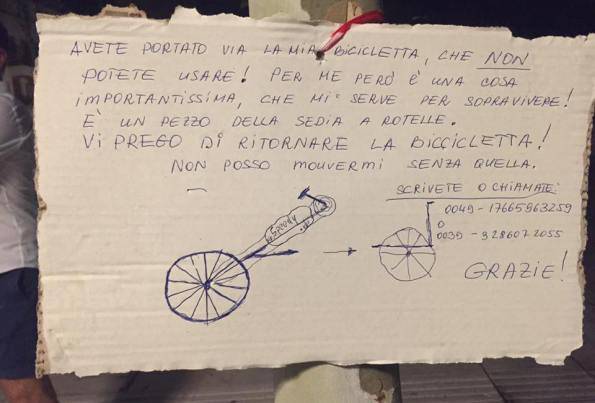 AVETE PORTATO VIA LA MIA BICICLETTA, CHE NON
POTETE USARE! PER ME PERÒ È UNA COSA
IMPORTANTISSIMA, CHE MI SERVE PER SOPRAVIVERE!
È UN PEZZO DELLA SEDIA A ROTELLE.
VI PREGO DI RITORNARE LA BICCICLETTA!
NON POSSO MOUVERMI SENZA QUELLA.
SCRIVETE O CHIAMATE:
0049-17665963259
O
0039-3286072055
GRAZIE!